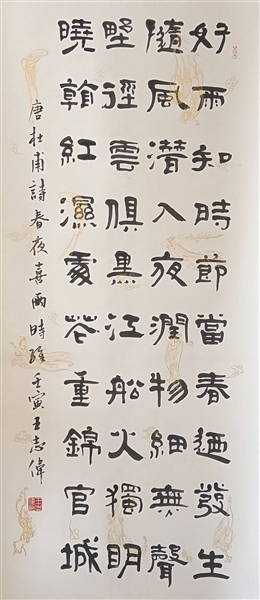 好雨知時節當春迺發生
隨風潛入夜潤物細無聲
野徑雲俱黑江船火獨明
曉看紅濕處花重錦官城
唐杜甫詩春夜喜雨時維壬寅王志偉